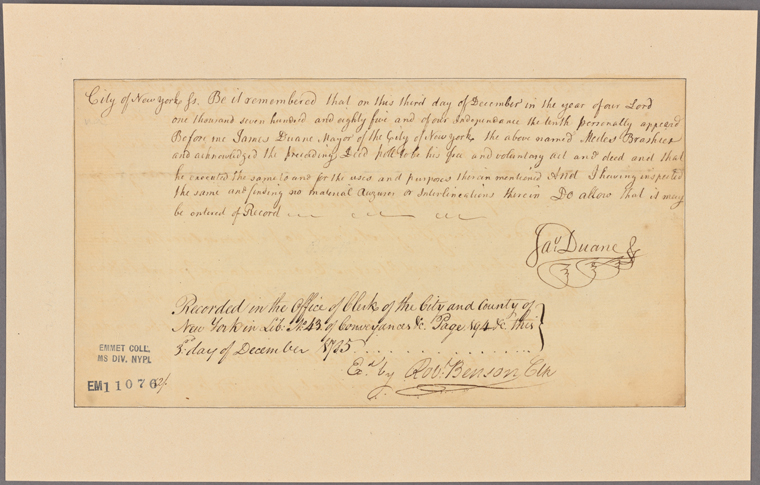 City of New York ss. Be it remembered that on this third day of December in the year of our Lord
one thousand seven hundred and eighty five and of our Independence the tenth personally appeared
Before me James Duane Mayor of the City of New York the above named Abraham Brasher
and acknowledged the preceding Deed poll to be his free and voluntary act and deed and that
he executed the same to and for the uses and purposes therein mentioned And I having inspected
the same and finding no material Erazures or Interlineations therein Do allow that it may
be entered of Record
Jas. Duane
Recorded in the Office of Clerk of the City and County of
New York in Lib: No. 43 of Conveyances &c. Page 194 &c. this
3d. day of December 1785
Exd. by Robt. Benson Clk
EMMET COLL.
MS DIV. NYPL
EM11076